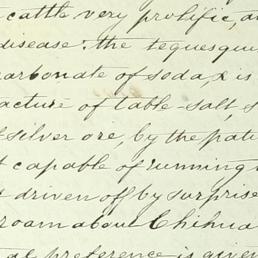 cattle very prolific, a
disease: the tequesqui
carbonate of soda, & is
acture of table-salt, s
silver ore, by the pati
capable of running
driven off by surprise
roam about Chihua
al preference is given